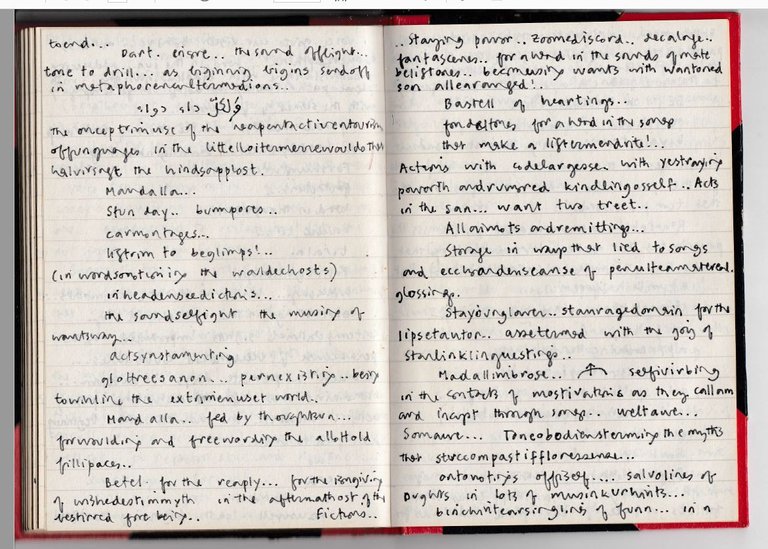 toend...
Dart. ensre.. the sound offlight..
tone to drill... as biginning bigins sendoff
in metaphorencultermedions..
the onceptrimuse of the
offunguages in the
halvirsaft the hindsapplost.
Mandalla...
Stun day.. bumpores..
carmontages...
listrim to beglimps!..
(in wordsonotioning the waldechosts)
inheadenseedictions...
the soundselfight the musing of
wantsway...
actsynstamenting
glottreesanon... pernexisting.. being
townhline the extrimenuset world..
Mandalla... fed by thoughtsun...
forwoulding and freewording the allottold
fillipaces..
Betel for the reaply... for the
of wishedestimmyth in the aftermathost of the
bestirred fore being.. Fictions..
.. Staying power.. zoomediscord.. decalage..
fantascenes.. for a word in the sounds of mete
belistones.. becomusing wants with wantoned
son allearanged!..
Bastell of heartings..
fondeltones for a word in the songs
that make a liftermendrite!..
Actions with codelargesse with yestraying
poworth andrumored kindlingosself.. Acts
in the san... want two treet..
Allaimots andremittings...
Storage in ways that lied to songs
and ecchoandenseanse of penulteamatereal.
glossing..
Stayounglover.. stauragedomain for the
lipsetautor.. assetermed with the gong of
Starlinklinguestings..
Madallimbrose... selfivirbing
in the contacts of mostivations as they callam
and incupt through songs... weltawe...
Somawe... Toneobodienstermings the myths
that stuccompastiffloressense...
ontomotings offiself.... salvolines of
oughts in lots of musinkurhints...
of funn... in a